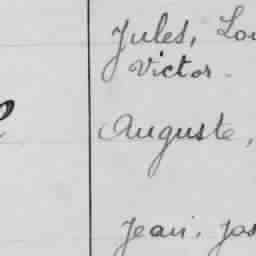 Jules,
Victor.
Auguste,
Jean,